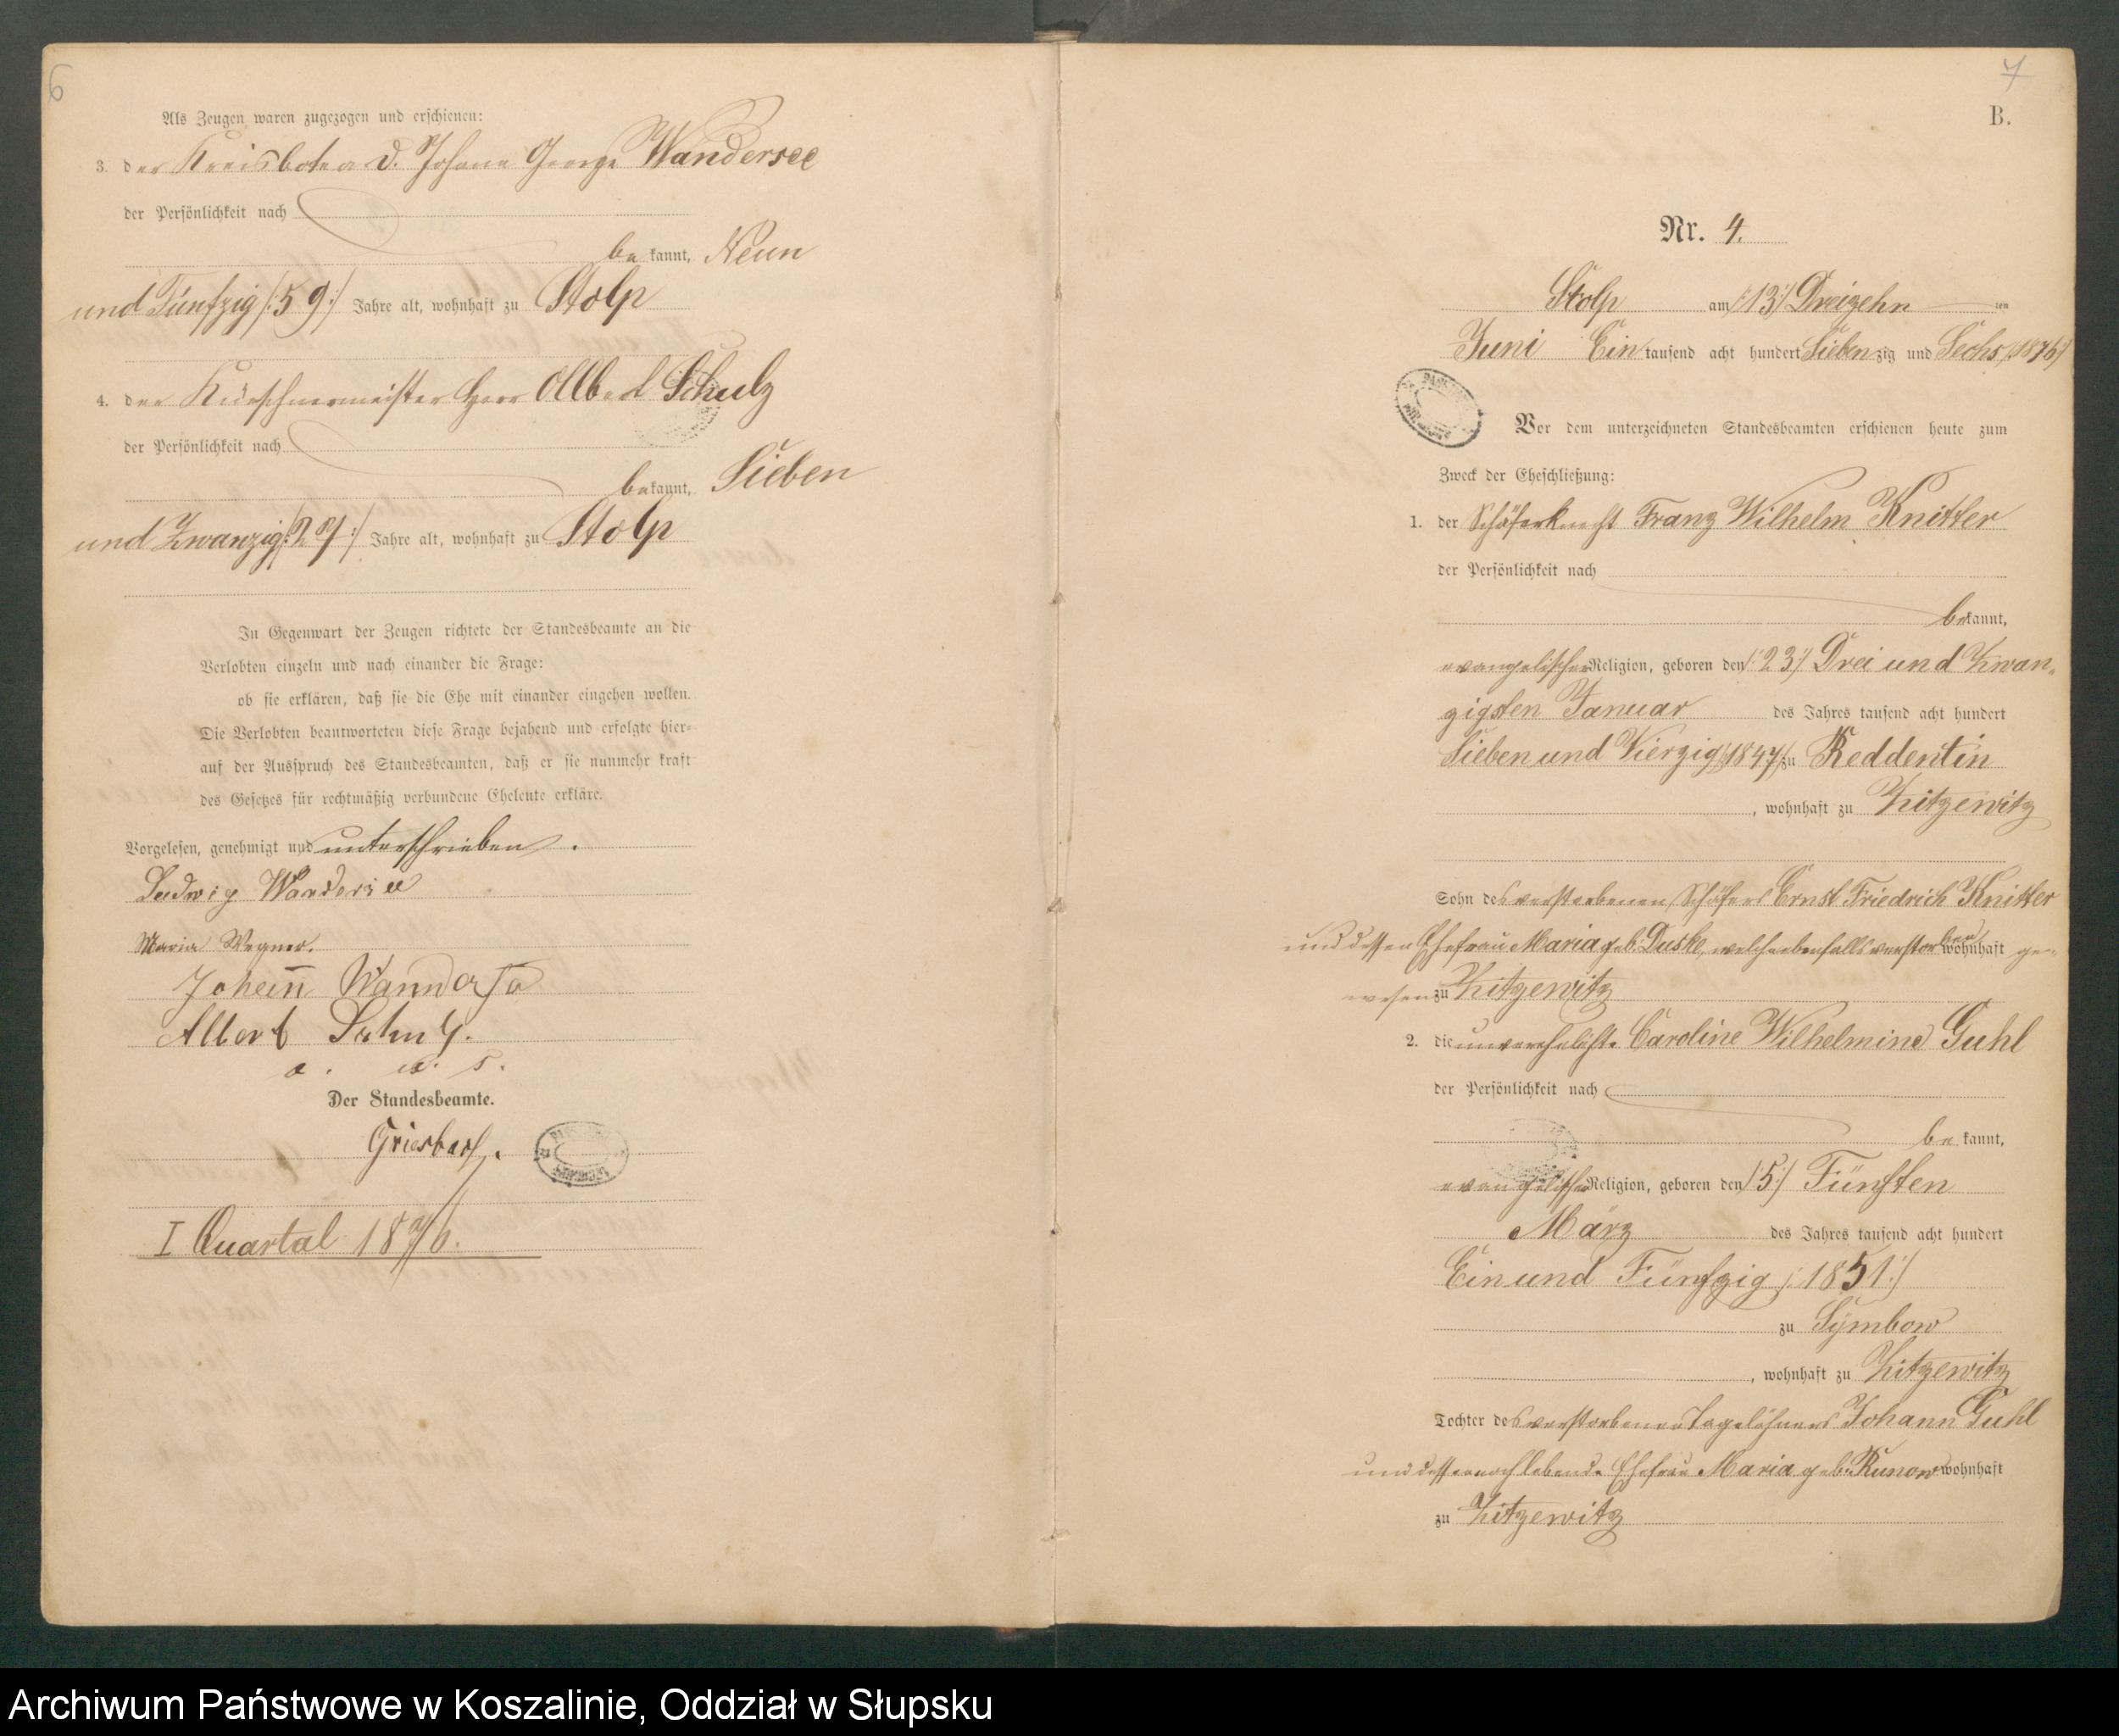 6
Als Zeugen waren zugezogen und erschienen:
3. der Kreisbote a. D. Johann George Wandersee
der Persönlichkeit nach
be kannt, Neun
und Fünfzig /:59:/ Jahre alt, wohnhaft zu Stolp
4. der Kürschnermeister Herr Albert Schulz
der Persönlichkeit nach
be kannt, Sieben
und Zwanzig /:27:/ Jahre alt, wohnhaft zu Stolp
In Gegenwart der Zeugen richtete der Standesbeamte an die
Verlobten einzeln und nach einander die Frage:
ob sie erklären, daß sie die Ehe mit einander eingehen wollen.
Die Verlobten beantworteten diese Frage bejahend und erfolgte hier-
auf der Ausspruch des Standesbeamten, daß er sie nunmehr kraft
des Gesetzes für rechtmäßig verbundene Eheleute erkläre.
Vorgelesen, genehmigt und unterschrieben.
Ludwig Wandersee
Maria Wegner.
Johann
Albert Schulz.
a. u. s.
Der Standesbeamte.
Griesbach.
I Quartal 1876.
7
B.
Nr. 4.
Stolp am /:13:/ Dreizehn ten
Juni Ein tausend acht hundert Sieben zig und Sechs /:1876:/
Vor dem unterzeichneten Standesbeamten erschienen heute zum
Zweck der Eheschließung:
1. der Schäferknecht Franz Wilhelm Knitter
der Persönlichkeit nach
be kannt,
evangelischer Religion, geboren den /:23:/ Drei und Zwan-
zigsten Januar des Jahres tausend acht hundert
Sieben und Vierzig /:1847:/ zu Reddentin
, wohnhaft zu Zitzewitz
Sohn des verstorbenen Schäfers Ernst Friedrich Knitter
und dessen Ehefrau Maria geb. Duske, welche ebenfalls verstorben wohnhaft ge-
wesen zu Zitzewitz
2. die unverehelichte Caroline Wilhelmine Guhl
der Persönlichkeit nach
be kannt,
evangelischer Religion, geboren den /:5:/ Fünften
März des Jahres tausend acht hundert
Ein und Fünfzig /:1851:/
zu Symbow
, wohnhaft zu Zitzewitz
Tochter des verstorbenen Tagelöhners Johann Guhl
und dessen noch lebende Ehefrau Maria geb. Kunow wohnhaft
zu Zitzewitz
Archiwum Państwowe w Koszalinie, Oddział w Słupsku